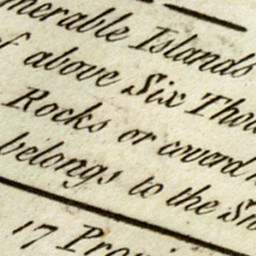 merable Islands
of above Six Thou
Rocks or coverd
belongs to the
17